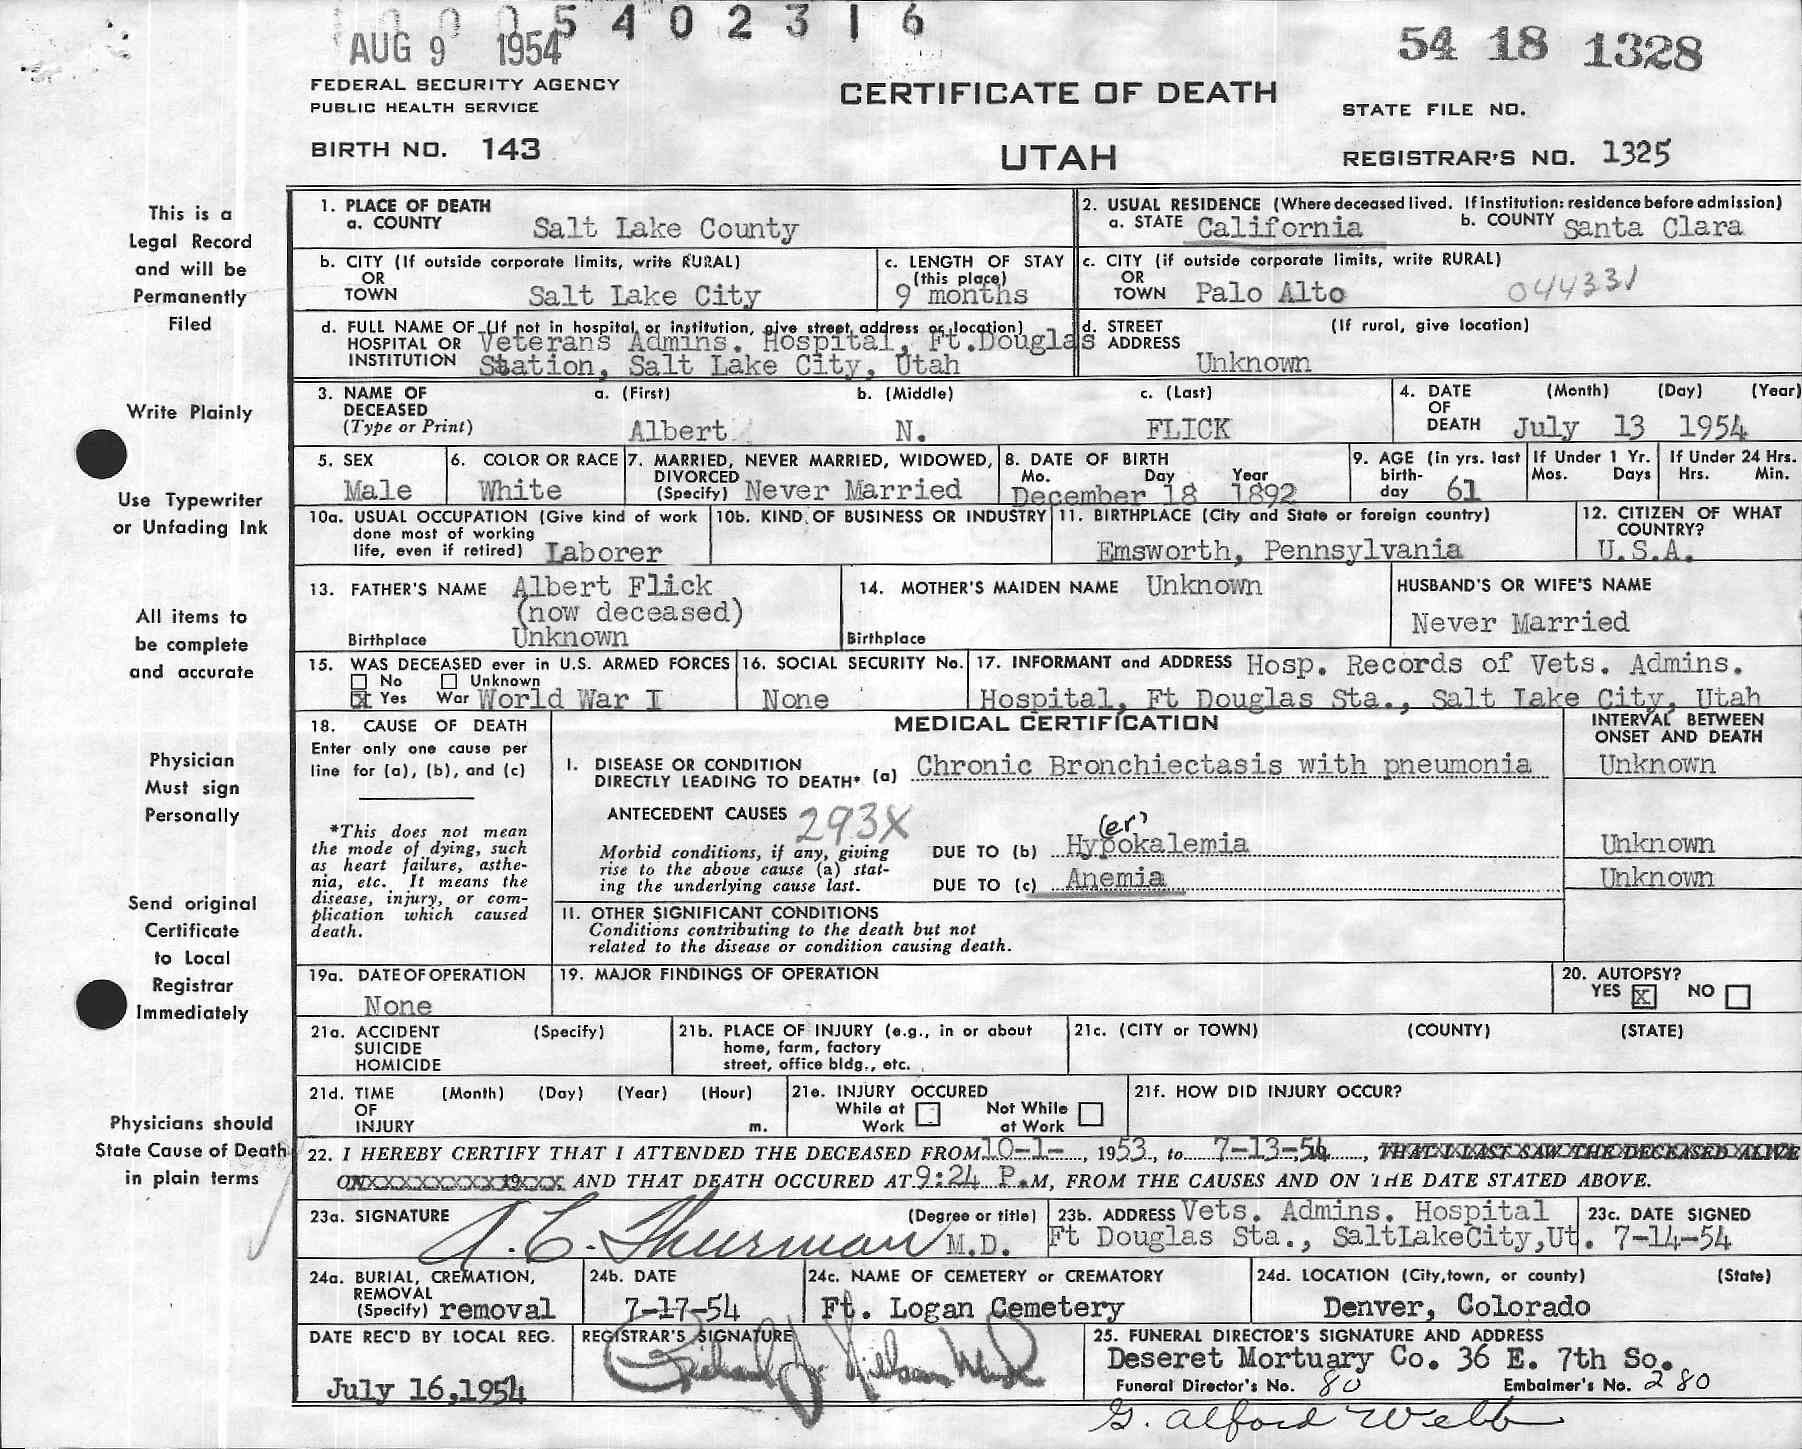 1000 5402316
AUG 9 1954
54 18 1328
FEDERAL SECURITY AGENCY
PUBLIC HEALTH SERVICE
CERTIFICATE OF DEATH
STATE FILE NO.
BIRTH NO. 143
UTAH
REGISTRAR'S NO. 1325
This is a
Legal Record
and will be
Permanently
Filed
Write Plainly
Use Typewriter
or Unfading Ink
All items to
be complete
and accurate
Physician
Must sign
Personally
Send original
Certificate
to Local
Registrar
Immediately
Physicians should
State Cause of Death
in plain terms
1. PLACE OF DEATH
a. COUNTY Salt Lake County
2. USUAL RESIDENCE (Where deceased lived. If institution: residence before admission)
a. STATE California b. COUNTY Santa Clara
b. CITY (If outside corporate limits, write RURAL)
OR
TOWN Salt Lake City
c. LENGTH OF STAY
(this place)
9 months
c. CITY (if outside corporate limits, write RURAL)
OR
TOWN Palo Alto 044331
d. FULL NAME OF (If not in hospital or institution, give street address or location)
HOSPITAL OR Veterans Admins. Hospital, Ft.Douglas
INSTITUTION Station, Salt Lake City, Utah
d. STREET (If rural, give location)
ADDRESS
Unknown
3. NAME OF a. (First) b. (Middle) c. (Last)
DECEASED
(Type or Print) Albert N. FLICK
4. DATE (Month) (Day) (Year)
OF
DEATH July 13 1954
5. SEX
Male
6. COLOR OR RACE
White
7. MARRIED, NEVER MARRIED, WIDOWED,
DIVORCED
(Specify) Never Married
8. DATE OF BIRTH
Mo. Day Year
December 18 1892
9. AGE (in yrs. last
birth-
day 61
If Under 1 Yr.
Mos. Days
If Under 24 Hrs.
Hrs. Min.
10a. USUAL OCCUPATION (Give kind of work
done most of working
life, even if retired) Laborer
10b. KIND OF BUSINESS OR INDUSTRY
11. BIRTHPLACE (City and State or foreign country)
Emsworth, Pennsylvania
12. CITIZEN OF WHAT
COUNTRY?
U.S.A.
13. FATHER'S NAME Albert Flick
(now deceased)
Birthplace Unknown
14. MOTHER'S MAIDEN NAME Unknown
Birthplace
HUSBAND'S OR WIFE'S NAME
Never Married
15. WAS DECEASED ever in U.S. ARMED FORCES
No Unknown
X Yes War World War I
16. SOCIAL SECURITY No.
None
17. INFORMANT and ADDRESS Hosp. Records of Vets. Admins.
Hospital, Ft Douglas Sta., Salt Lake City, Utah
18. CAUSE OF DEATH
Enter only one cause per
line for (a), (b), and (c)
*This does not mean
the mode of dying, such
as heart failure, asthe-
nia, etc. It means the
disease, injury, or com-
plication which caused
death.
MEDICAL CERTIFICATION
INTERVAL BETWEEN
ONSET AND DEATH
I. DISEASE OR CONDITION
DIRECTLY LEADING TO DEATH* (a) Chronic Bronchiectasis with pneumonia Unknown
ANTECEDENT CAUSES 293X
Morbid conditions, if any, giving
rise to the above cause (a) stat-
ing the underlying cause last.
(er)
DUE TO (b) Hypokalemia Unknown
DUE TO (c) Anemia Unknown
II. OTHER SIGNIFICANT CONDITIONS
Conditions contributing to the death but not
related to the disease or condition causing death.
19a. DATE OF OPERATION
None
19. MAJOR FINDINGS OF OPERATION
20. AUTOPSY?
YES X NO
21a. ACCIDENT (Specify)
SUICIDE
HOMICIDE
21b. PLACE OF INJURY (e.g., in or about
home, farm, factory
street, office bldg., etc.
21c. (CITY or TOWN) (COUNTY) (STATE)
21d. TIME (Month) (Day) (Year) (Hour)
OF
INJURY m.
21e. INJURY OCCURED
While at Work Not While at Work
21f. HOW DID INJURY OCCUR?
22. I HEREBY CERTIFY THAT I ATTENDED THE DECEASED FROM 10-1-, 1953, to 7-13-54, THAT I LAST SAW THE DECEASED ALIVE
ON 19 AND THAT DEATH OCCURED AT 9:24 P.M, FROM THE CAUSES AND ON THE DATE STATED ABOVE.
23a. SIGNATURE (Degree or title)
A. C. Thurman M.D.
23b. ADDRESS Vets. Admins. Hospital
Ft Douglas Sta., SaltLakeCity,Ut.
23c. DATE SIGNED
7-14-54
24a. BURIAL, CREMATION,
REMOVAL
(Specify) removal
24b. DATE
7-17-54
24c. NAME OF CEMETERY or CREMATORY
Ft. Logan Cemetery
24d. LOCATION (City,town, or county) (State)
Denver, Colorado
DATE REC'D BY LOCAL REG.
July 16,1954
REGISTRAR'S SIGNATURE
25. FUNERAL DIRECTOR'S SIGNATURE AND ADDRESS
Deseret Mortuary Co. 36 E. 7th So.
Funeral Director's No. 80 Embalmer's No. 280
G. Alford Webb